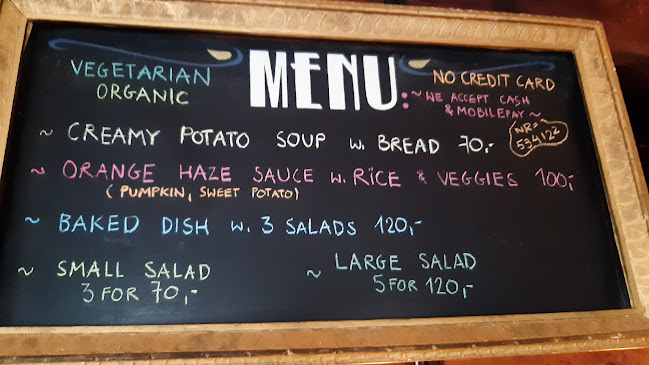 VEGETARIAN
ORGANIC
MENU:
NO CREDIT CARD
~ WE ACCEPT CASH
& MOBILEPAY ~
~ CREAMY POTATO SOUP w. BREAD 70,-
NR:
534122
~ ORANGE HAZE SAUCE w. RICE & VEGGIES 100,-
(PUMPKIN, SWEET POTATO)
~ BAKED DISH w. 3 SALADS 120,-
~ SMALL SALAD
3 FOR 70,-
~ LARGE SALAD
5 FOR 120,-